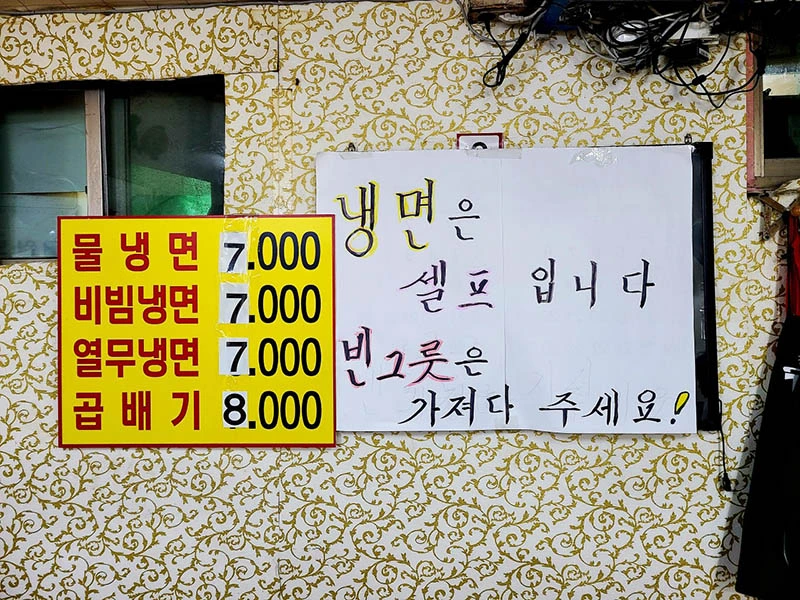 물냉면 7.000
비빔냉면 7.000
열무냉면 7.000
곱배기 8.000
냉면은
셀프 입니다
빈그릇은
가져다 주세요!